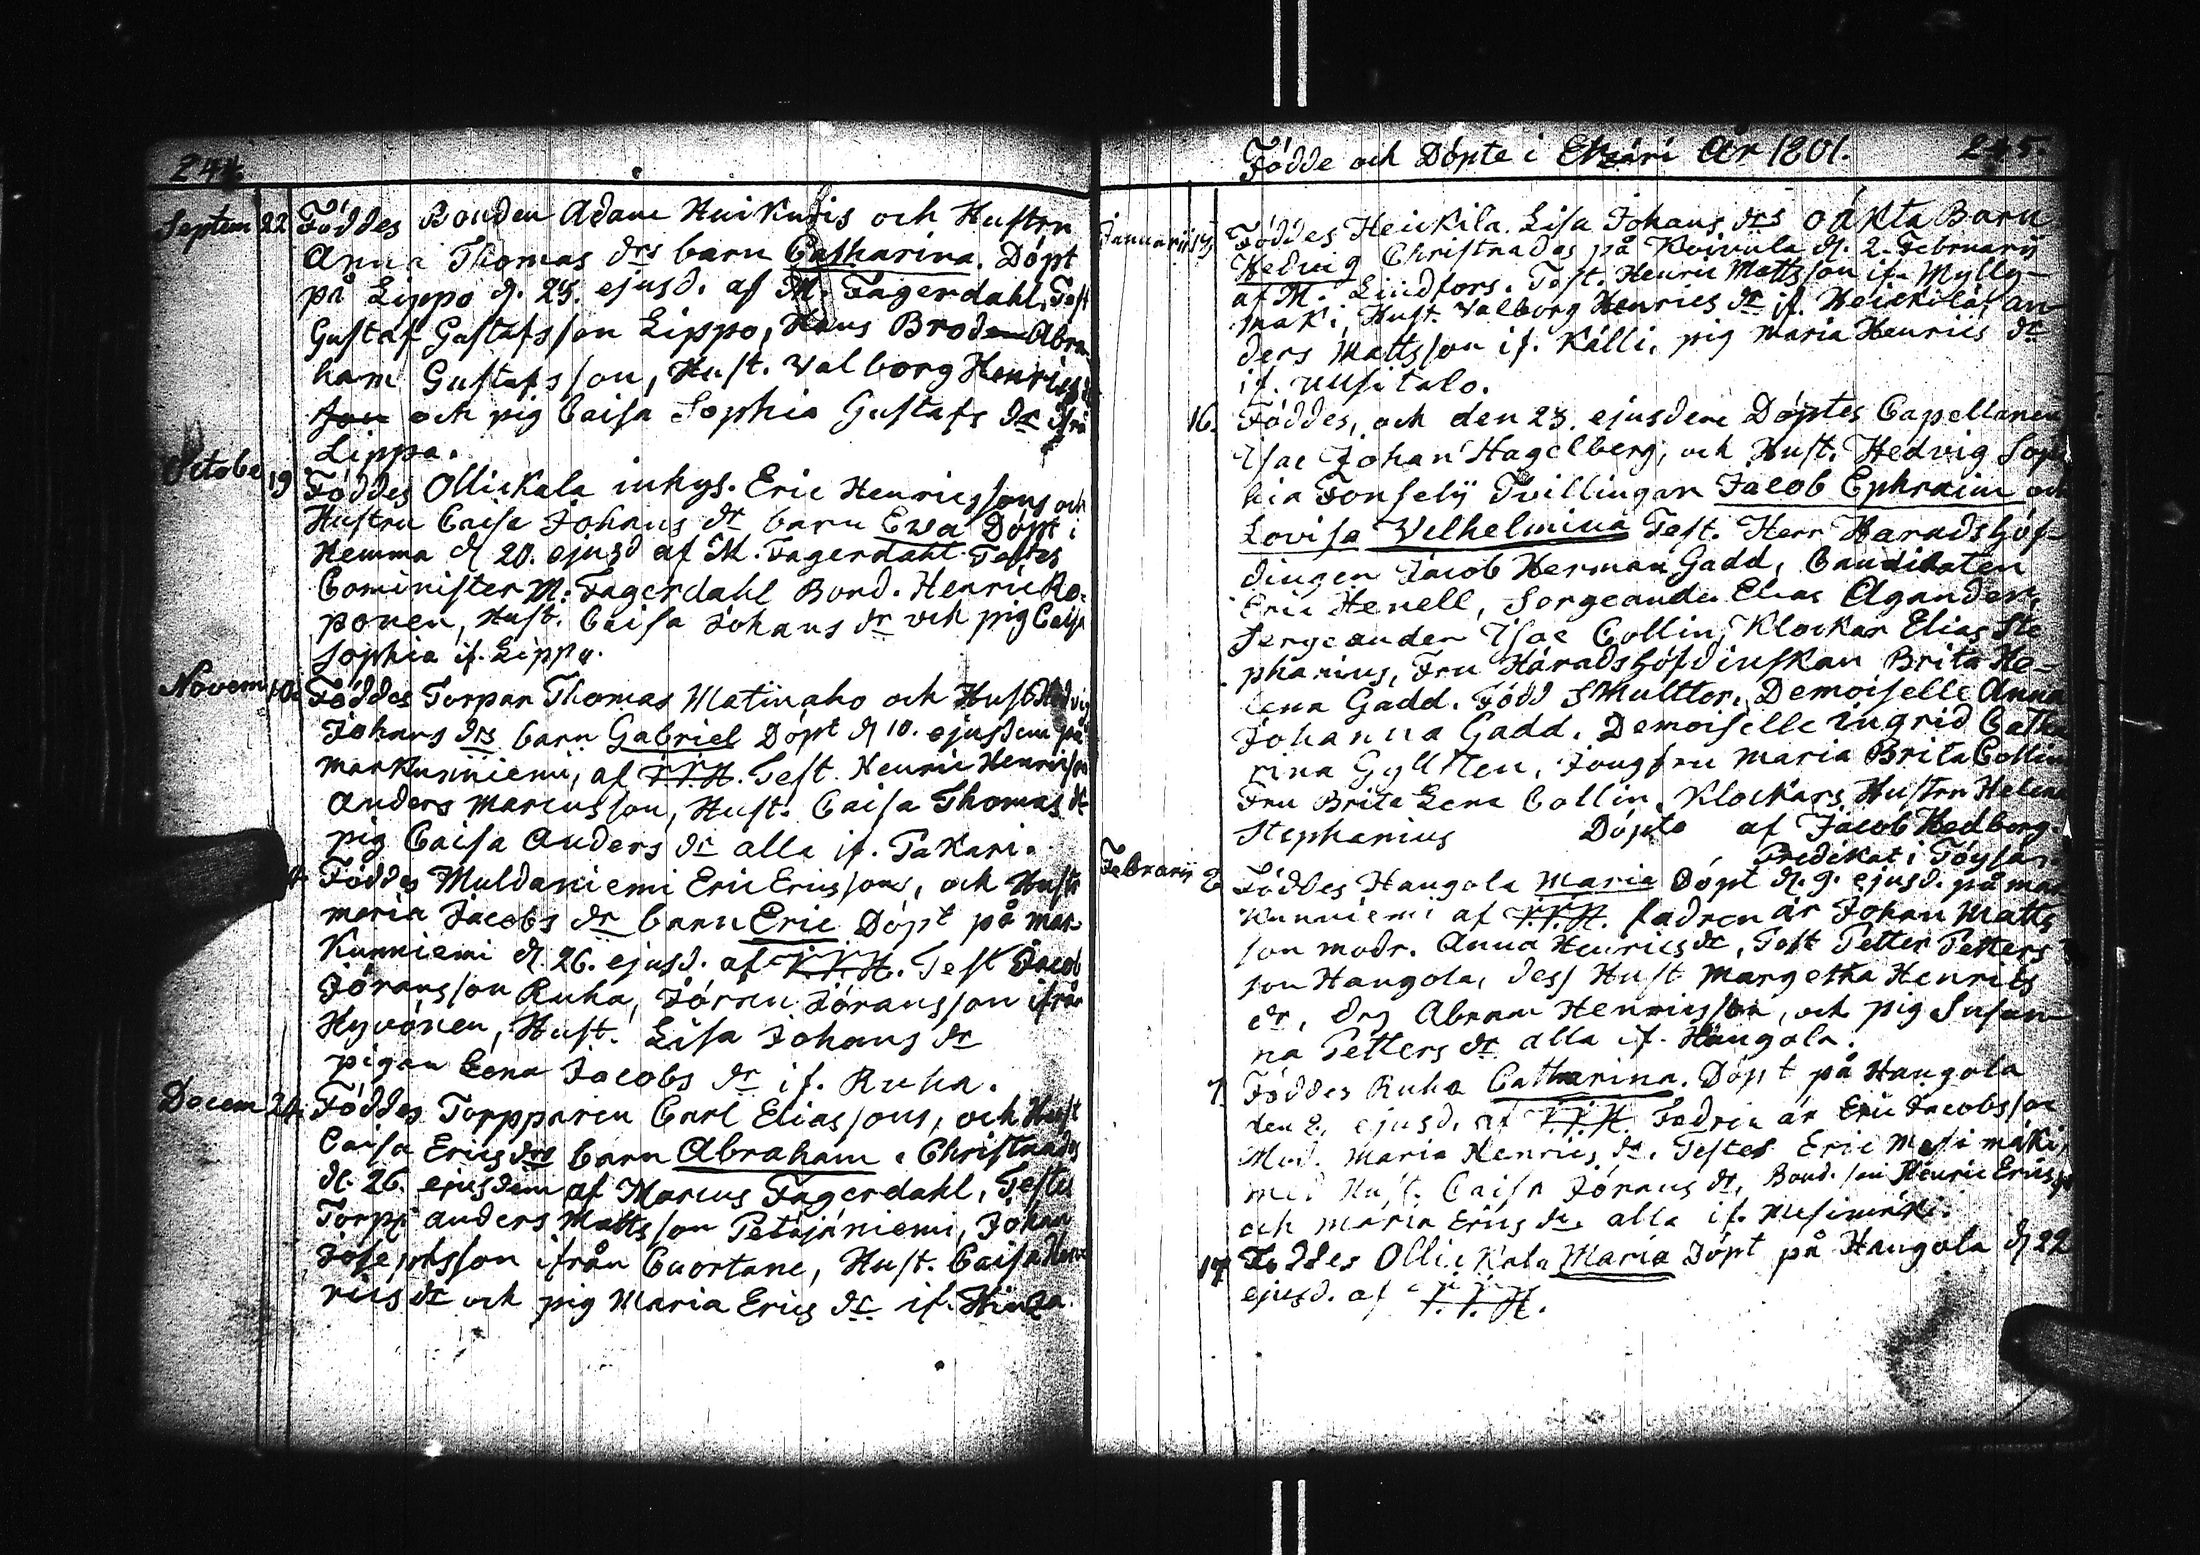 244.
Septem 22 Föddes Bonden Adam Huikuris och Hustru
Anna Thomas drs barn Catharina. Döpt
på Lippo d. 23. ejusd. af M. Fagerdahl. Test
Gustaf Gustafsson Lippo, Hans Broder Abra
ham Gustafsson, Hust. Valborg Henrics
och pig Caisa Sophia Gustafs dr ifrå
Lippo.
Octobe 19 Föddes Ollickala inhys. Eric Henricssons och
Hustru Caisa Johans dr barn Ewa Döpt i
Hemma d 20. ejusd af M. Fagerdahl. Testes
Cominister M. Fagerdahl Bond. Henric Ro-
ponen, Hust. Caisa Johans dr och pig Caisa
Sophia if. Lippo.
Novem 10. Föddes Torpar Thomas Matinaho och Hust Hedvig
Johans drs barn Gabriel Döpt d 10. ejusdem på
Markunniemi, af I.I.H. Test. Henric Henricsson
Anders Marcusson, Hust. Caisa Thomas dr
pig Caisa Anders dr alla if. Takari.
Föddes Muldaniemi Eric Ericssons, och Hustr
Maria Jacobs dr barn Eric Döpt på Mar-
kunniemi d. 26. ejusd. af I.I.H. Test Jacob
Göransson Ruha, Göran Göransson ifrån
Hyvönen, Hust. Lisa Johans dr
pigan Lena Jacobs dr if. Ruha.
Decem 24. Föddes Torpparen Carl Eliassons, och Hust
Caisa Erics drs barn Abraham. Christnades
d. 26. ejusdem af Marcus Fagerdahl, Testes
Torpp anders Mattsson Petäjäniemi, Johan
Josephsson ifrån Cuortane, Hust. Caisa Hen
rics dr och pig Maria Erics dr if.
Födde och Döpte i Etzäri År 1801. 245.
Januarii 13. Föddes Heickila Lisa Johans drs oäkta Barn
Hedvig Christnades på Koivula d. 2. Februarii
af M. Lindfors. Test. Henric Mattsson if. Mylly-
maki, Hust. Valborg Henrics dr if. Heickilä, an-
ders Mattsson if. Källi, pig Maria Henrics dr
if. Uusitalo.
16. Föddes, och den 23. ejusdem Döptes Capellanen
Isac Johan Hagelberg, och Hust. Hedvig Sop
hia Fonselii Tvillingar Jacob Ephraim och
Lovisa Velhelmina Test. Herr Häradshöf-
dingen Jacob Herman Gadd, Candidaten
Eric Henell, Sergeanden Elias Agander,
Sergeanden Isac Collin, Klockar Elias Ste
phanius, Fru Häradshöfdinskan Brita He-
lena Gadd. Född Smulttor, Demoiselle Anna
Johanna Gadd, Demoiselle Ingrid Catha
rina Gyllsten, Jungfru Maria Brita Collin
Fru Brita Lena Collin, Klockars Hustru Helena
Stephanius Döpte af Jacob Hedberg
Predikat i Töysä
Februarii 2. Föddes Hangola Maria Döpt d. 9. ejusd. på Mar
kunniemi af I.I.H. fadren är Johan Matts
son modr. Anna Henrics dr, Test Petter Petters
son Hangola, dess Hust Margetha Henrics
dr, drg Abram Henricsson, och pig Susan-
na Petters dr alla if. Hangola.
7. Föddes Ruha Catharina. Döpt på Hangola
den 8. ejusd. af I.I.H Fadren är Eric Jacobsson
Mod. Maria Henrics dr. Testes Eric Mesimäki,
med Hust. Caisa Jörans dr, Bond. son Henric Ericsson
och Maria Erics dr alla if. Mesimäki.
17. Föddes Ollickala Maria Döpt på Hangola d 22
ejusd. af I.I.H.